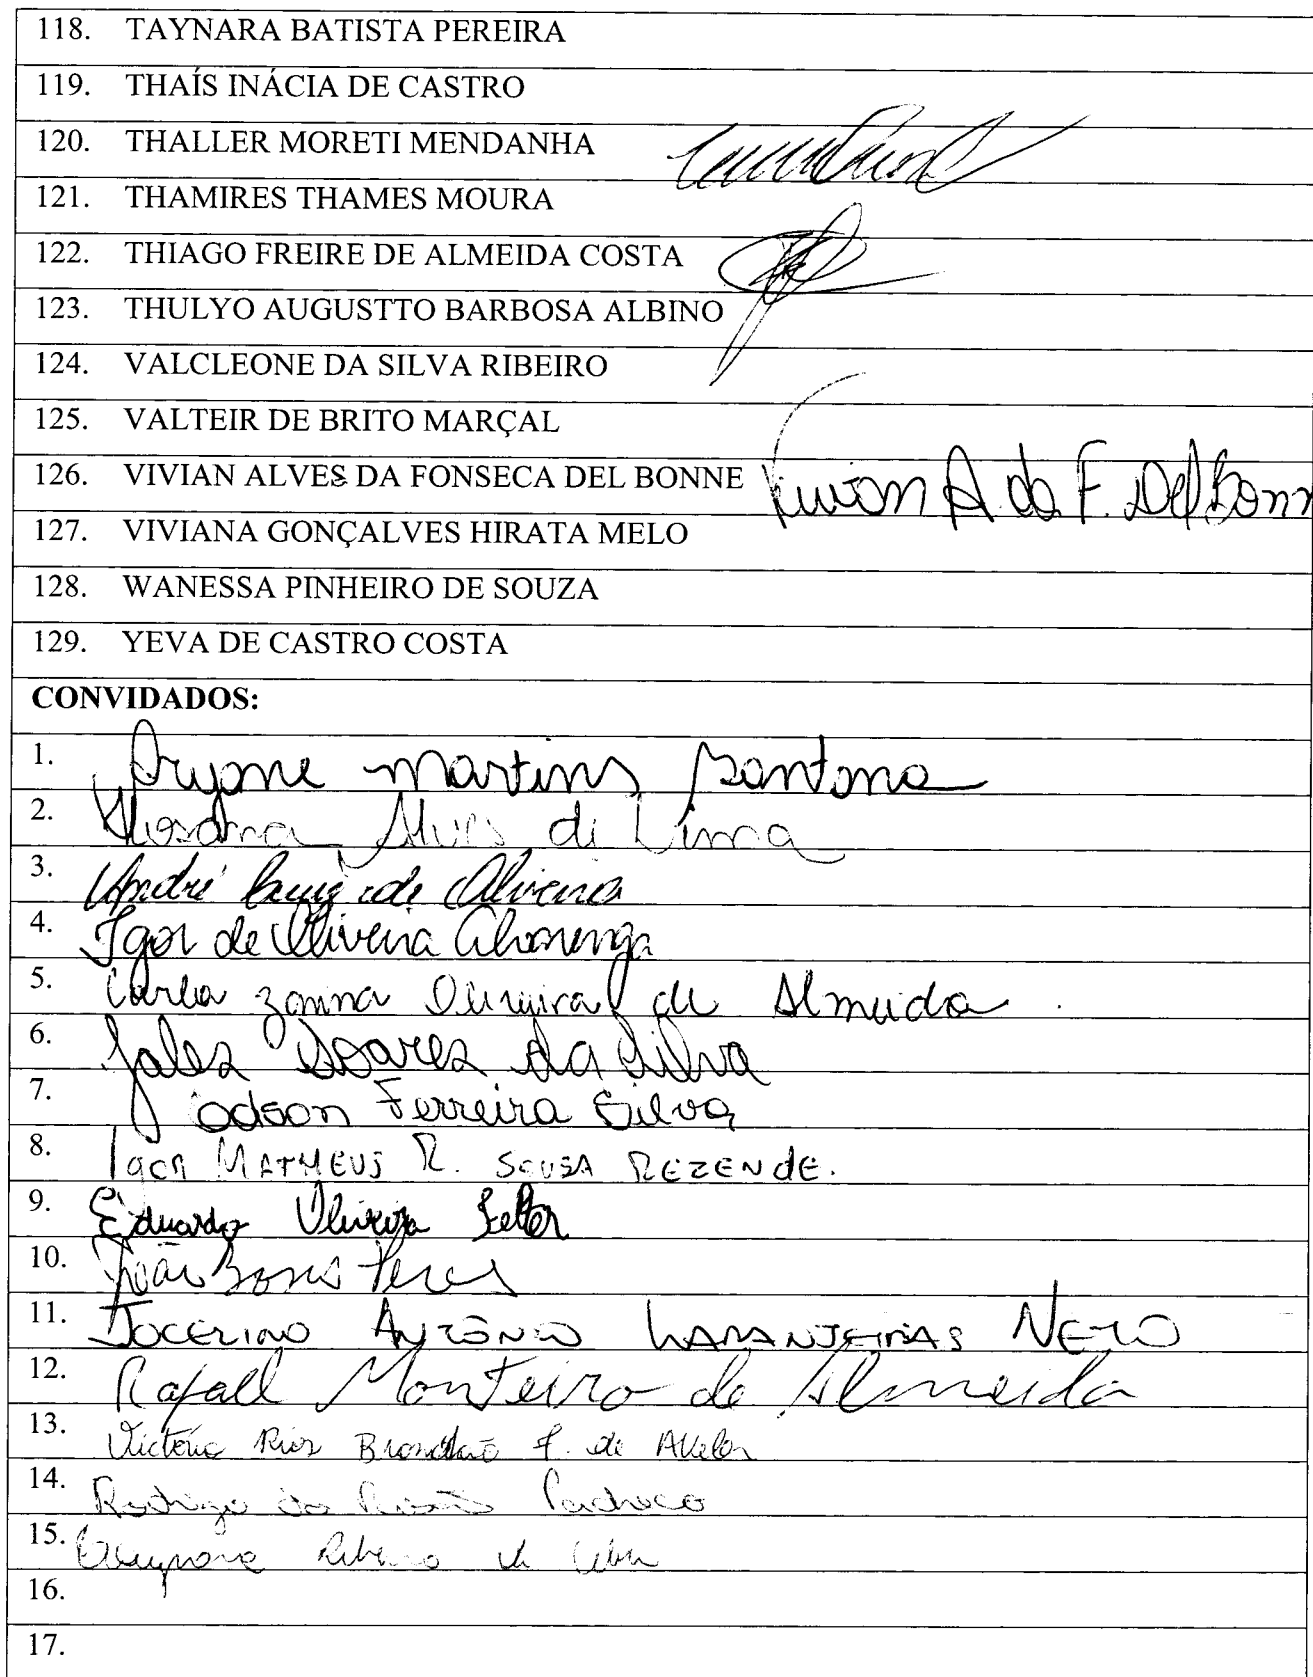 118. TAYNARA BATISTA PEREIRA
119. THAÍS INÁCIA DE CASTRO
120. THALLER MORETI MENDANHA
121. THAMIRES THAMES MOURA
122. THIAGO FREIRE DE ALMEIDA COSTA
123. THULYO AUGUSTTO BARBOSA ALBINO
124. VALCLEONE DA SILVA RIBEIRO
125. VALTEIR DE BRITO MARÇAL
126. VIVIAN ALVES DA FONSECA DEL BONNE Vivian A. da F. Del Bonn
127. VIVIANA GONÇALVES HIRATA MELO
128. WANESSA PINHEIRO DE SOUZA
129. YEVA DE CASTRO COSTA
CONVIDADOS:
1. Aryane Martins Santana
2. Rosana Alves de Lima
3. André Luiz de Oliveira
4. Igor de Oliveira Alvarenga
5. Carla Zanina Oliveira de Almeida
6. Jales Soares da Silva
7. Odson Ferreira Silva
8. Igor MATHEUS R. SOUSA REZENDE.
9. Eduardo Oliveira
10. João Peres
11. JOCELINO ANTÔNIO LARANJEIRAS NETO
12. Rafael Monteiro de Almeida
13. Victória Rios Brandão F. de
14. Rodrigo do Pacheco
15. Ribeiro
16.
17.